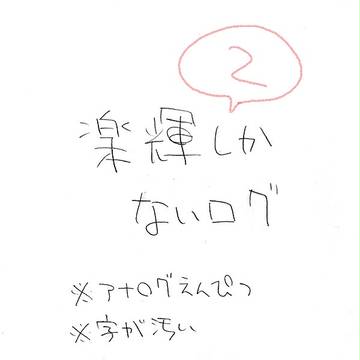 2
楽輝しか
ないログ
※アナログえんぴつ
※字が汚い